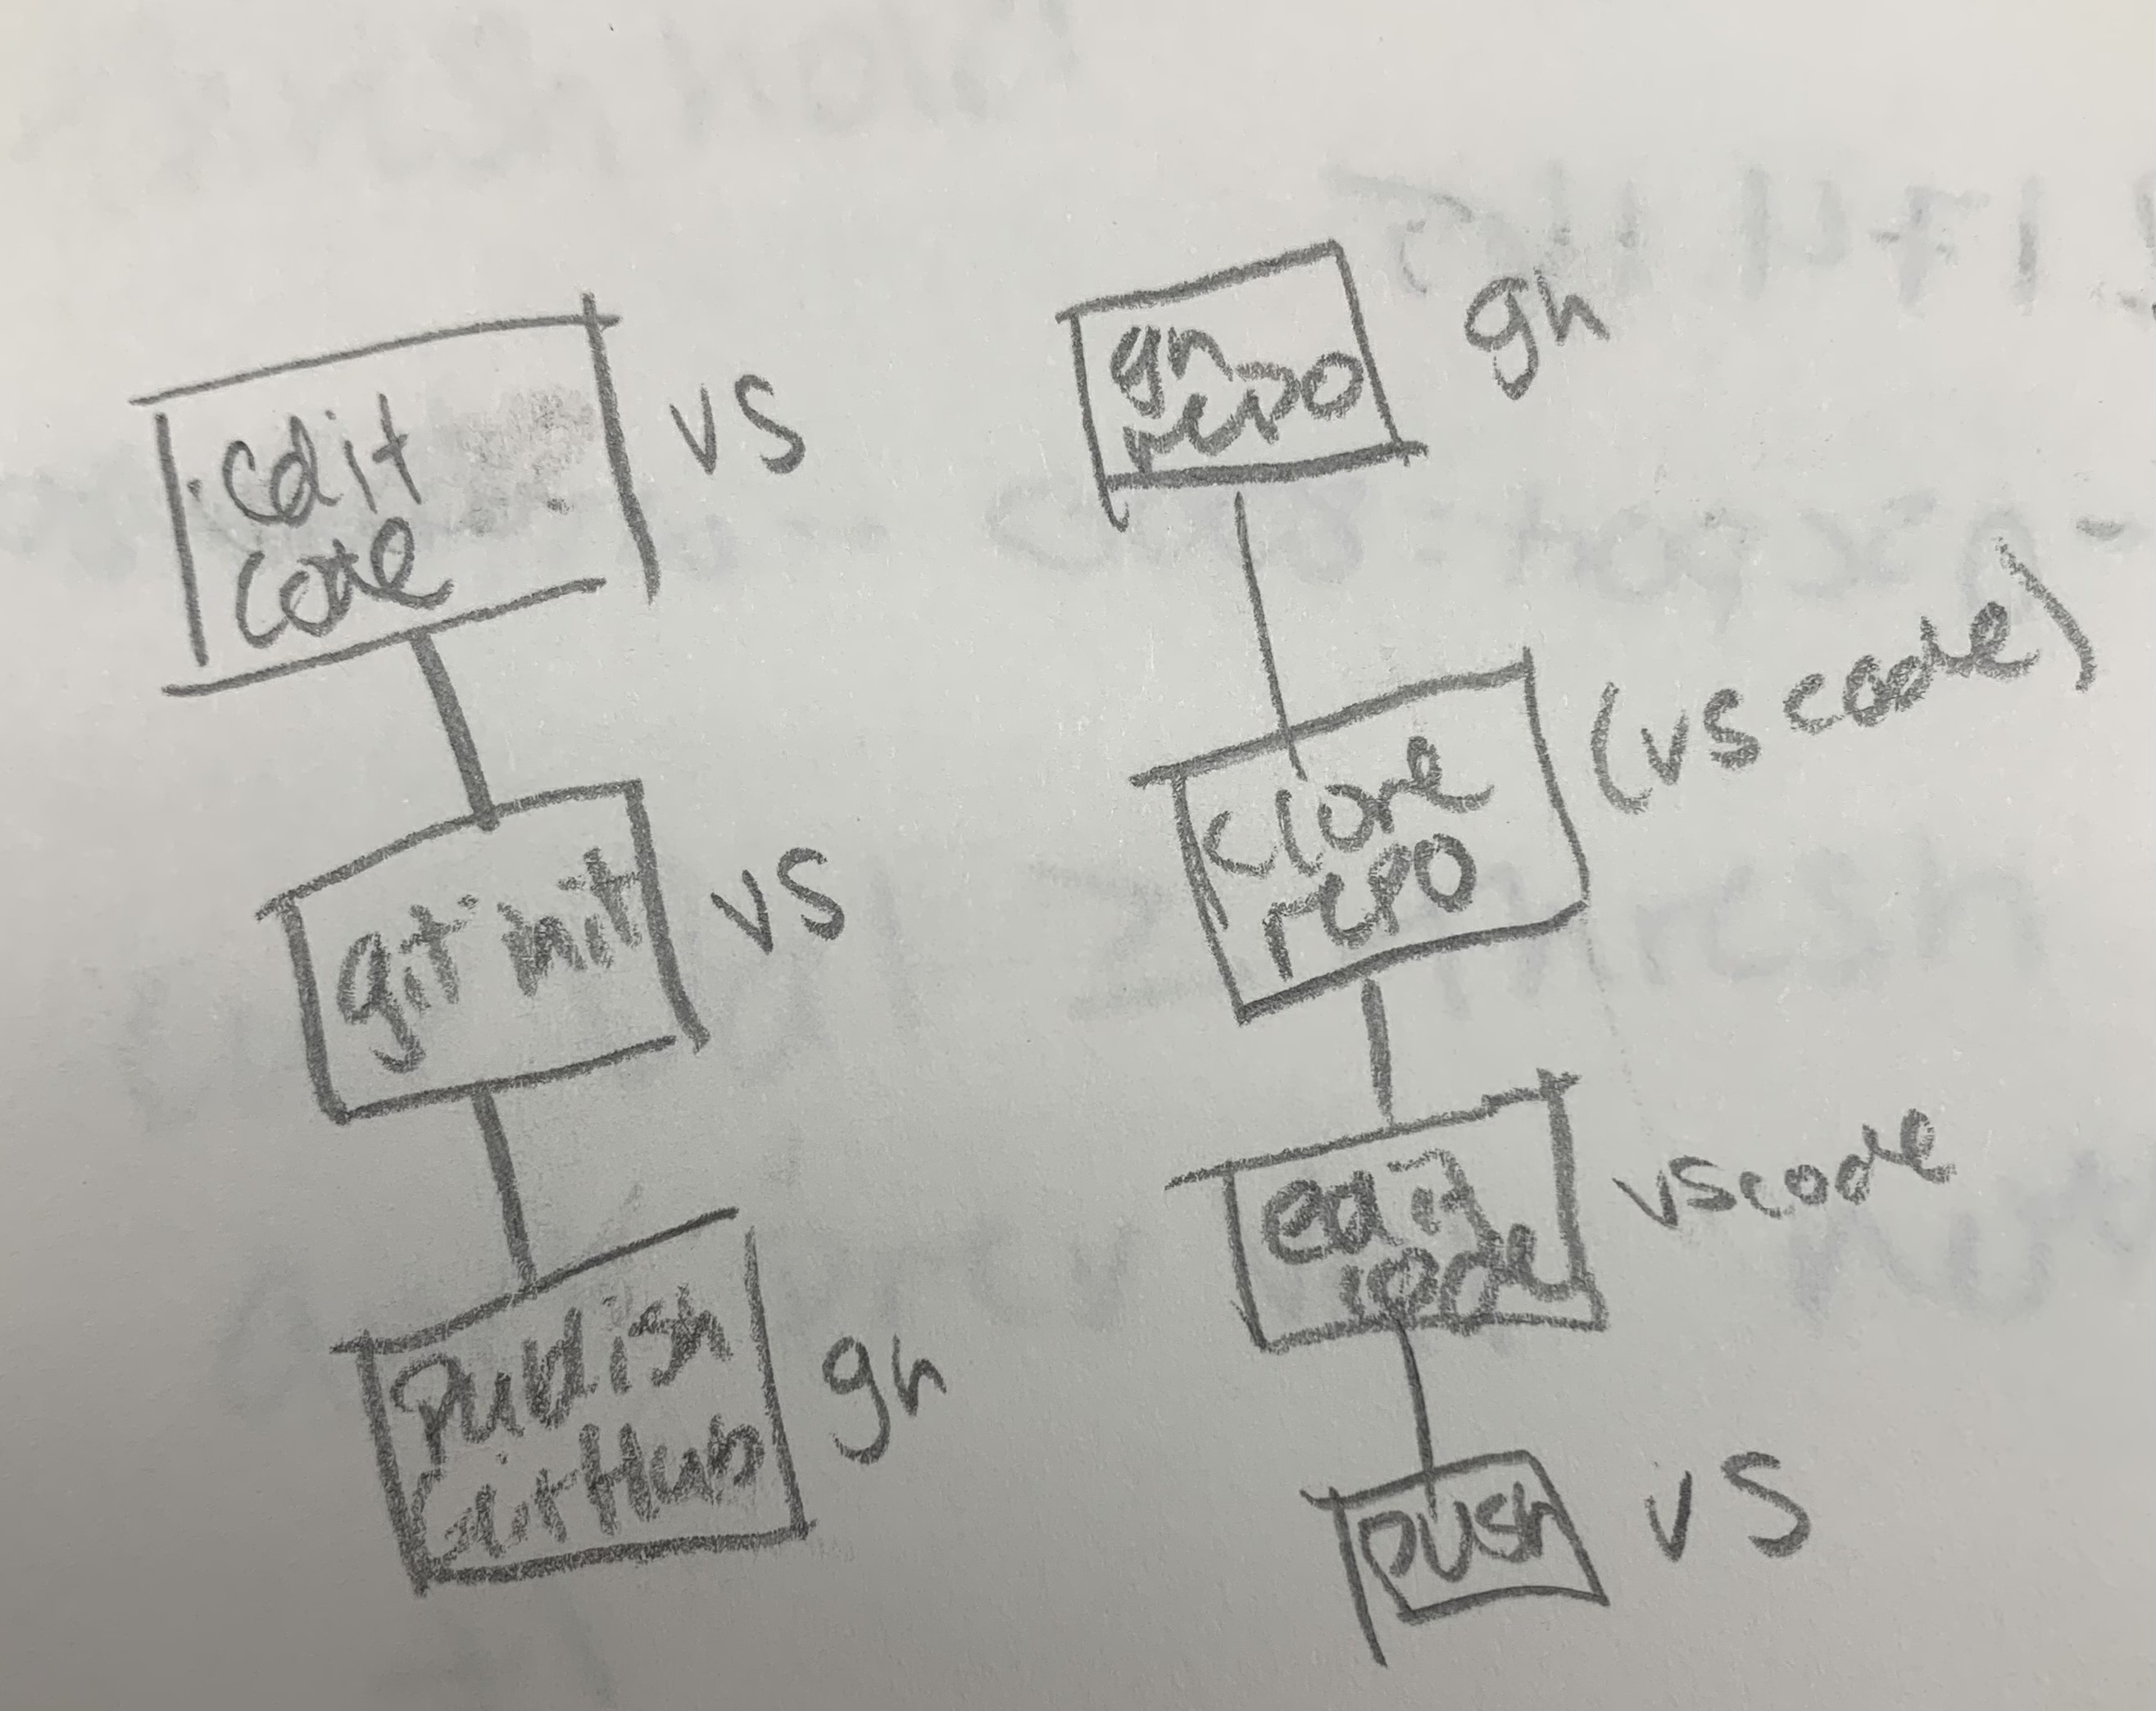 edit
code
vs
git init
vs
Publish
GitHub
gh
gh
repo
gh
clone
repo
(vs code)
edit
code
vscode
push
vs